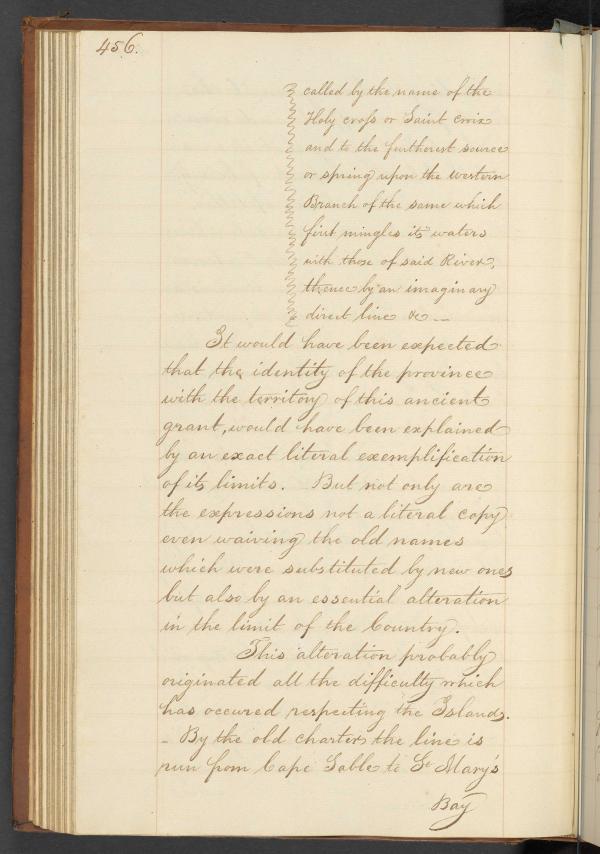 456.
called by the name of the
Holy cross or Saint croix
and to the furtherest source
or spring upon the western
Branch of the same which
first mingles its waters
with those of said River,
thence by an imaginary
direct line &c —
It would have been expected
that the identity of the province
with the territory of this ancient
grant, would have been explained
by an exact literal exemplification
of its limits. But not only are
the expressions not a literal copy
even waiving the old names
which were substituted by new ones
but also by an essential alteration
in the limit of the Country.
This alteration probably
originated all the difficulty which
has occured respecting the Islands.
– By the old charter the line is
run from Cape Sable to St Mary's
Bay